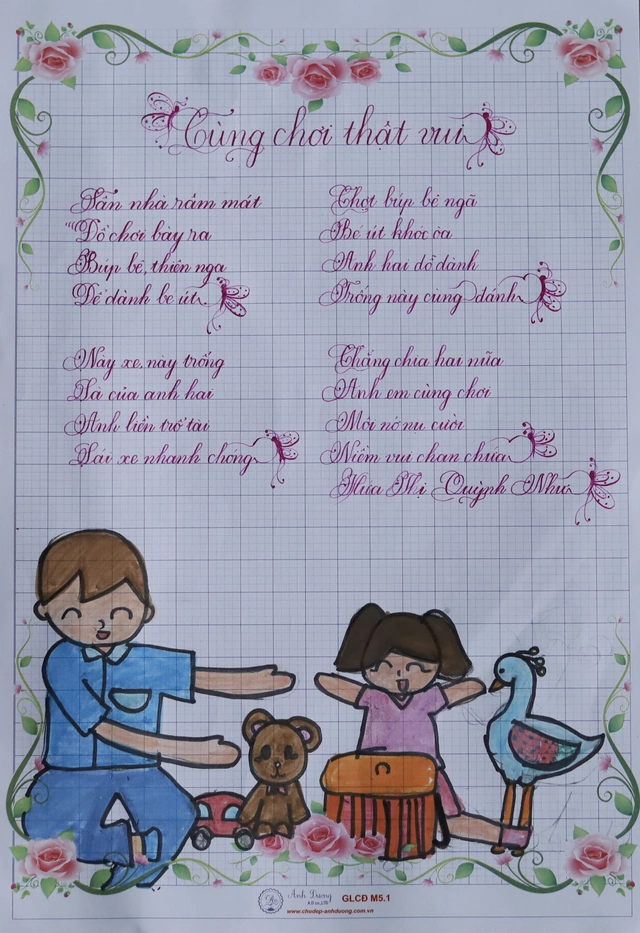 Cùng chơi thật vui
Sân nhà râm mát
Đồ chơi bày ra
Búp bê, thiên nga
Để dành bé út
Này xe, này trống
Là của anh hai
Anh liền trổ tài
Lái xe nhanh chóng
Chợt búp bê ngã
Bé út khóc òa
Anh hai dỗ dành
Trống này cùng đánh
Chẳng chia hai nữa
Anh em cùng chơi
Môi nở nụ cười
Niềm vui chan chứa
Hứa Thị Quỳnh Như
Ánh Dương GLCĐ M5.1
A.D co.,LTD
www.chudep-anhduong.com.vn